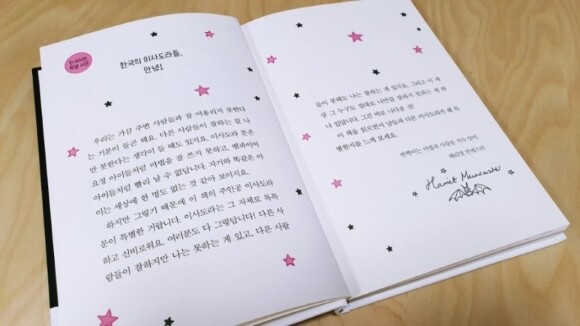 한국의 이사도라들,
안녕!
우리는 가끔 주변 사람들과 잘 어울리지 못한다
는 기분이 들곤 해요. 다른 사람들이 잘하는 걸 나
만 못한다는 생각이 들 때도 있지요. 이사도라 문은
요정 아이들처럼 마법을 잘 쓰지 못하고, 뱀파이어
아이들처럼 빨리 날 수 없답니다. 자기와 똑같은 아
이는 세상에 한 명도 없는 것 같아 보이지요.
하지만 그렇기 때문에 이 책의 주인공 이사도라
문이 특별한 거랍니다. 이사도라는 그 자체로 독특
하고 신비로워요. 여러분도 다 그렇답니다! 다른 사
람들이 잘하지만 나는 못하는 게 있고, 다른 사람
들이 못해도 나는 잘하는 게 있지요. 그리고 이 세
상 그 누구도
나 있답니다. 그건 바로 나다운 것!
이 책을 읽으면서 남들과 다른 이사도라가 왜 특
별한지를 느껴 보세요.
반짝이는 마법과 사랑을 가득 담아,
해리엇 먼캐스터
Harriet Muncaster